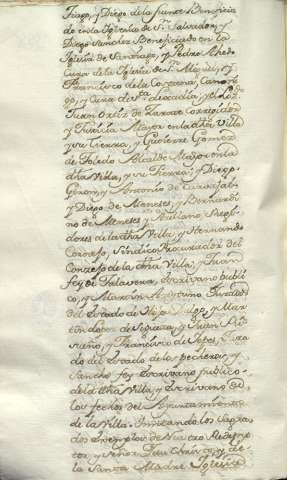 tiago, y Diego de la fuente Beneficia
do en la Iglesia de Sn. Salvador, y
Diego Sanchez Beneficiado en la
Iglesia de Santiago, y Pedro
Cura de la Iglesia de Sn. Miguel, y
Francisco de la Canoni
go, y Cura de Sta. Leocadia, y el
Juan Ortiz de Zarate Corregidor
y Justicia Mayor en la dha Villa
y su tierra, y Gutierre Gomez
de Toledo Alcalde Mayor en la
dha Villa, y su tierra, y Diego
Giron, y Antonio de
y Diego de Meneses, y Bernardi
no de Meneses, y Regi
dores de la dha Villa, y Hernando
Sindico Procurador del
Concejo de la dha Villa, y Juan
fez de Talavera, Escrivano publi
co, y Martin Jurado
del Estado de Hijos Dalgo, y Mar
tin Lopez de Segura, y Juan
y Francisco de Jura
do del Estado de los pecheros, y
Sancho fez Escrivano publico
de la dha Villa, y Escrivano de
los fechos del Ayuntamiento
de la Villa. Imitando los Sagra
dos exemplos de Nuestro Redemp
tor, y Señor Jesu Christo, y de
la Santa Madre Iglesia